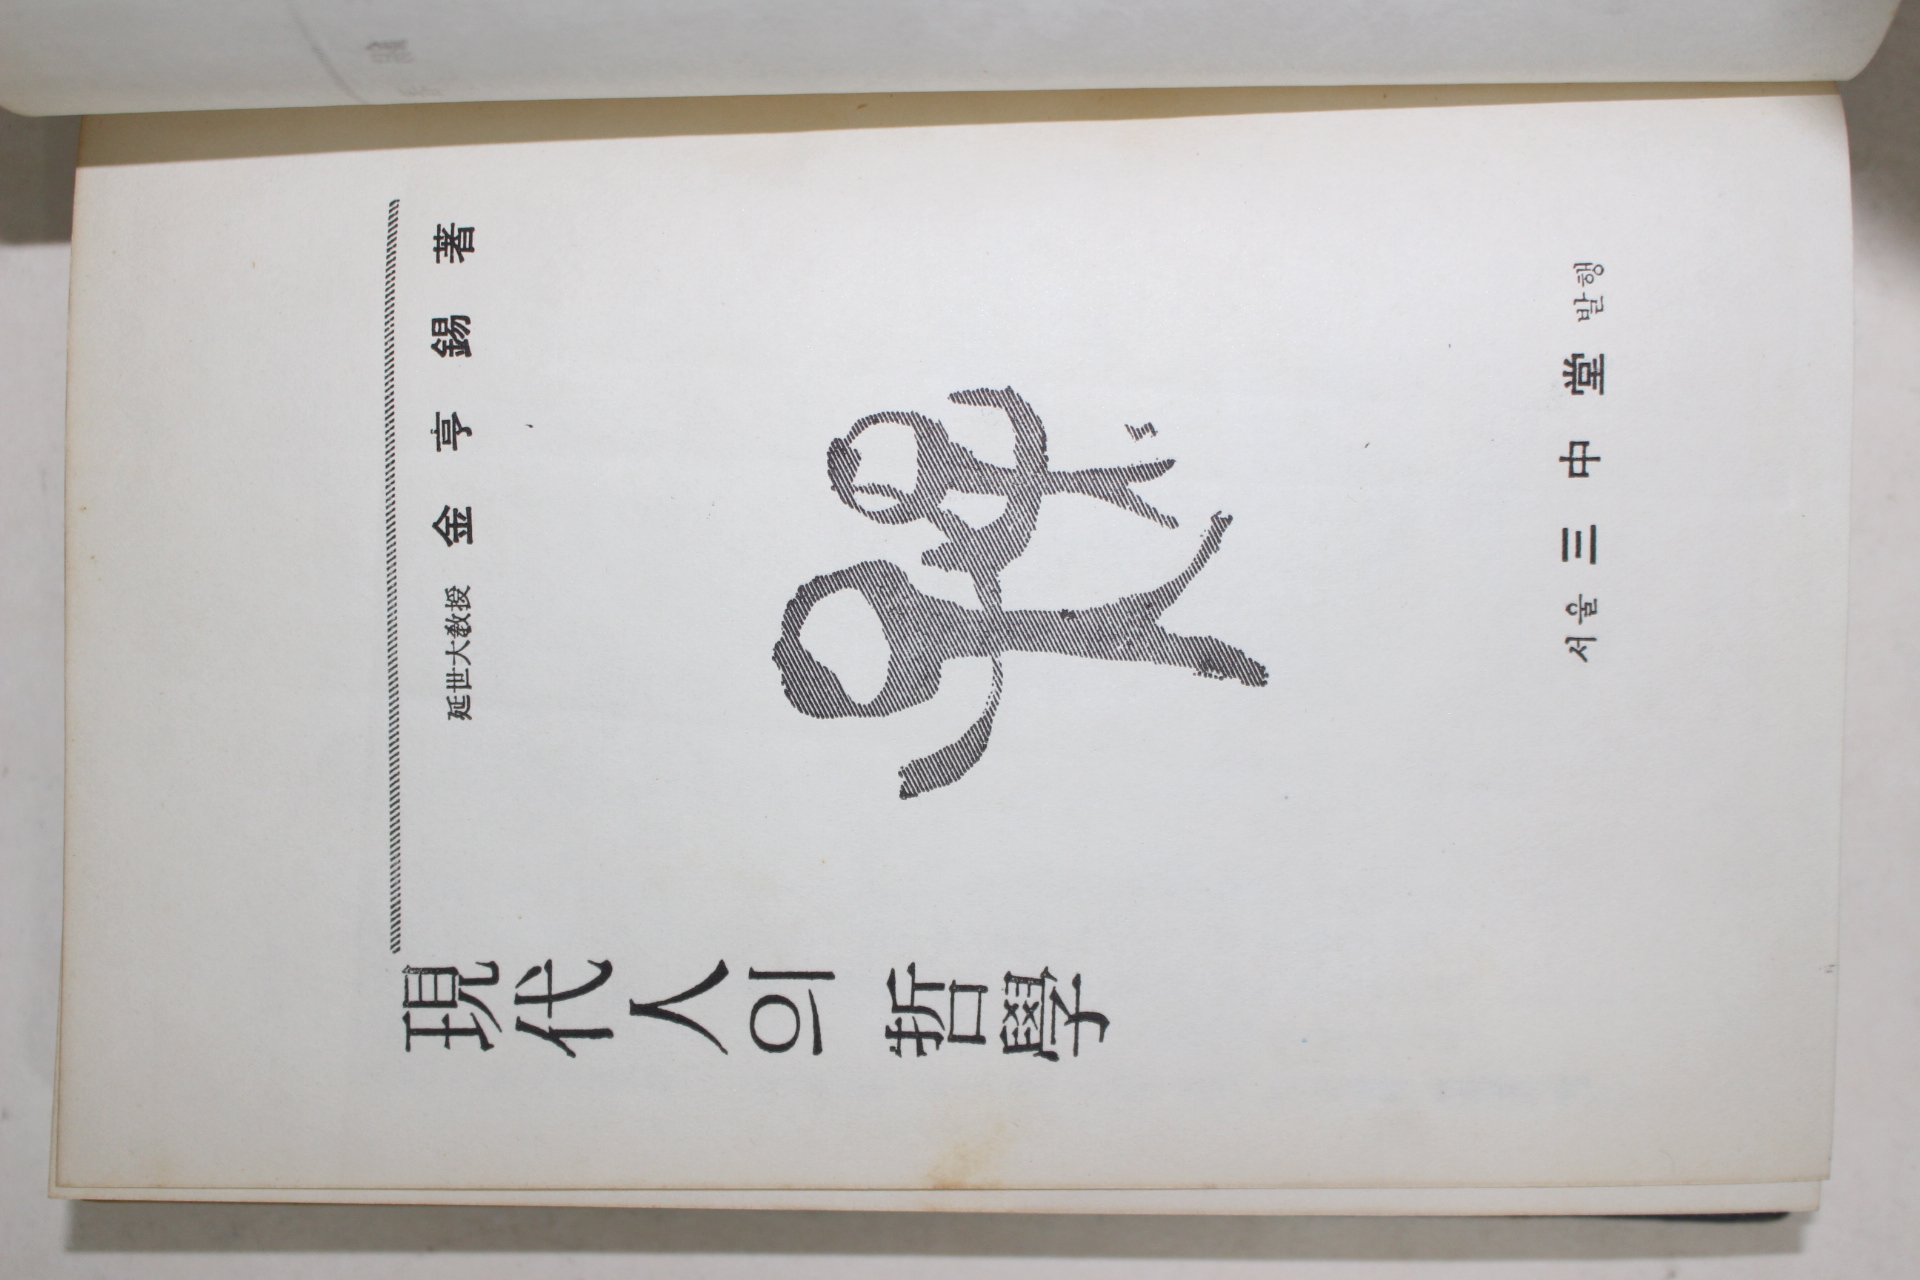 現代人의 哲學
延世大敎授 金亨錫 著
서울 三中堂 발행